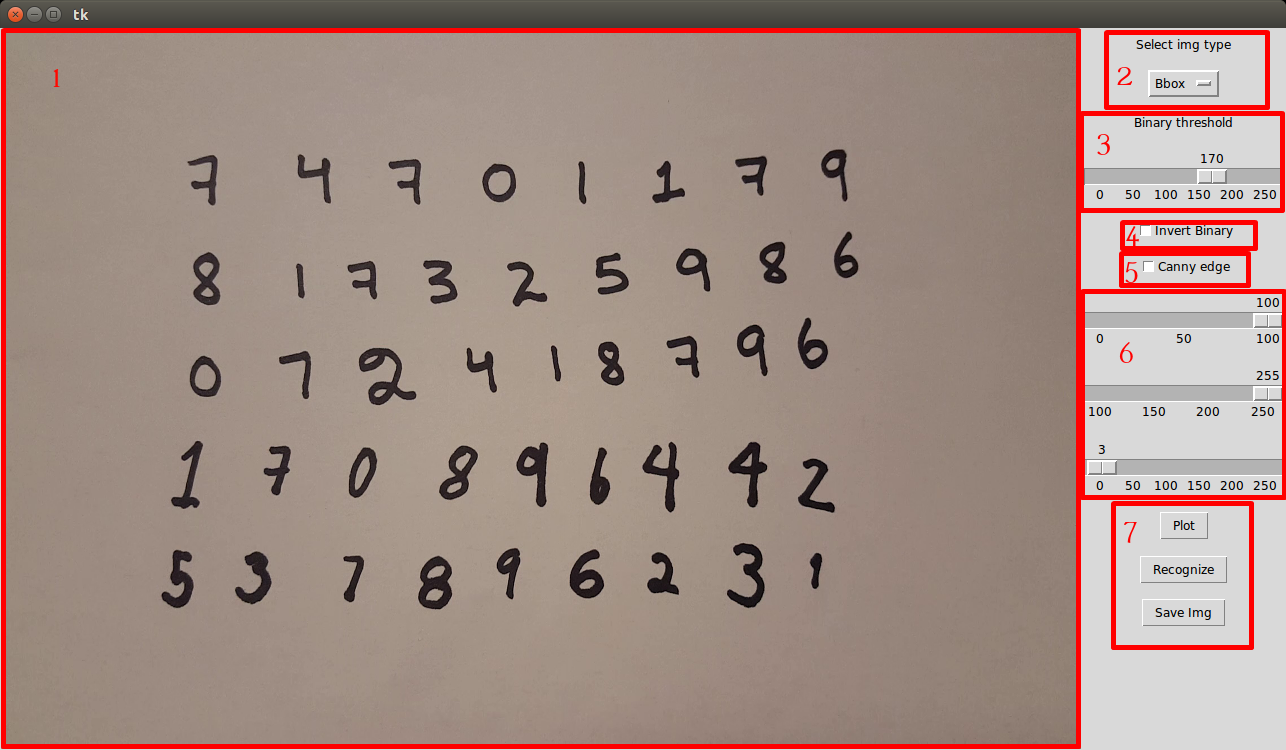 tk
1
7 4 7 0 1 1 7 9
8 1 7 3 2 5 9 8 6
0 7 2 4 1 8 7 9 6
1 7 0 8 9 6 4 4 2
5 3 7 8 9 6 2 3 1
Select img type
2 Bbox
Binary threshold
3
170
0 50 100 150 200 250
4 Invert Binary
5 Canny edge
100
0 50 100
6
255
100 150 200 250
3
0 50 100 150 200 250
7 Plot
Recognize
Save Img